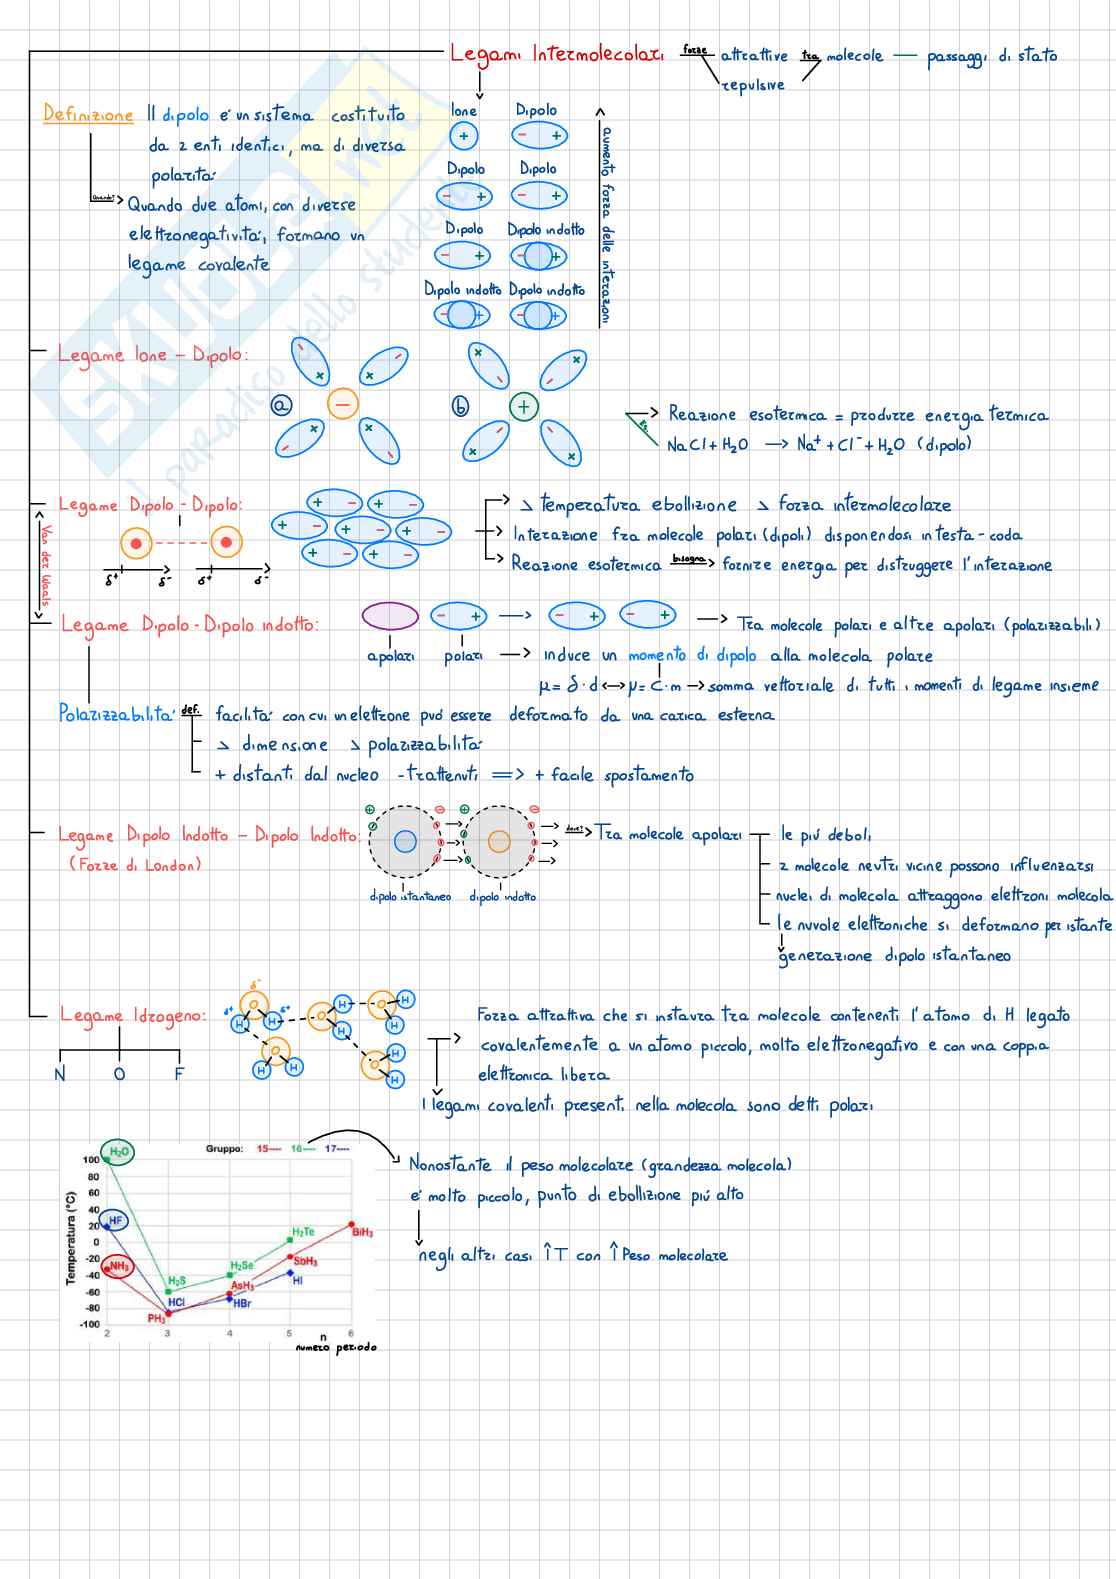 Legami Intermolecolari forze attrattive tra molecole — passaggi di stato
repulsive
Definizione Il dipolo e' un sistema costituito
da 2 enti identici, ma di diversa
polarita'
Quando? Quando due atomi, con diverse
elettronegativita', formano un
legame covalente
Ione Dipolo
+ - +
Dipolo Dipolo
- + - +
Dipolo Dipolo indotto
- + - +
Dipolo indotto Dipolo indotto
- + - +
aumento forza delle interazioni
SKUOLA.net
il paradiso dello studente
Legame Ione - Dipolo:
a -
b +
Es. Reazione esotermica = produrre energia termica
NaCl + H₂O → Na⁺ + Cl⁻ + H₂O (dipolo)
Legame Dipolo - Dipolo:
δ⁺ δ⁻ δ⁺ δ⁻
> temperatura ebollizione > forza intermolecolare
Interazione fra molecole polari (dipoli) disponendosi in testa - coda
Reazione esotermica bisogna fornire energia per distruggere l'interazione
Van der Waals
Legame Dipolo - Dipolo indotto:
- + → - + - + → Tra molecole polari e altre apolari (polarizzabili)
apolari polari → induce un momento di dipolo alla molecola polare
μ = δ · d ↔ μ = C · m → somma vettoriale di tutti i momenti di legame insieme
Polarizzabilita' def. facilita' con cui un elettrone può essere deformato da una carica esterna
> dimensione > polarizzabilita'
+ distanti dal nucleo - trattenuti ⟹ + facile spostamento
Legame Dipolo Indotto - Dipolo Indotto:
(Forze di London)
dipolo istantaneo dipolo indotto
dove? Tra molecole apolari le più deboli
2 molecole neutri vicine possono influenzarsi
nuclei di molecola attraggono elettroni molecola
le nuvole elettroniche si deformano per istante
generazione dipolo istantaneo
Legame Idrogeno:
N O F
δ⁻
δ⁺ O δ⁺
H H
O H H
O H H
O H H
O H H
Forza attrattiva che si instaura tra molecole contenenti l'atomo di H legato
covalentemente a un atomo piccolo, molto elettronegativo e con una coppia
elettronica libera
I legami covalenti presenti nella molecola sono detti polari
Gruppo: 15 16 17
Nonostante il peso molecolare (grandezza molecola)
e' molto piccolo, punto di ebollizione più alto
negli altri casi ↑T con ↑ Peso molecolare
Temperatura (°C)
100
80
60
40
20
0
-20
-40
-60
-80
-100
H₂O
HF
NH₃
H₂S
HCl
PH₃
H₂Se
AsH₃
HBr
H₂Te
SbH₃
HI
BiH₃
2 3 4 5 6
n
numero periodo